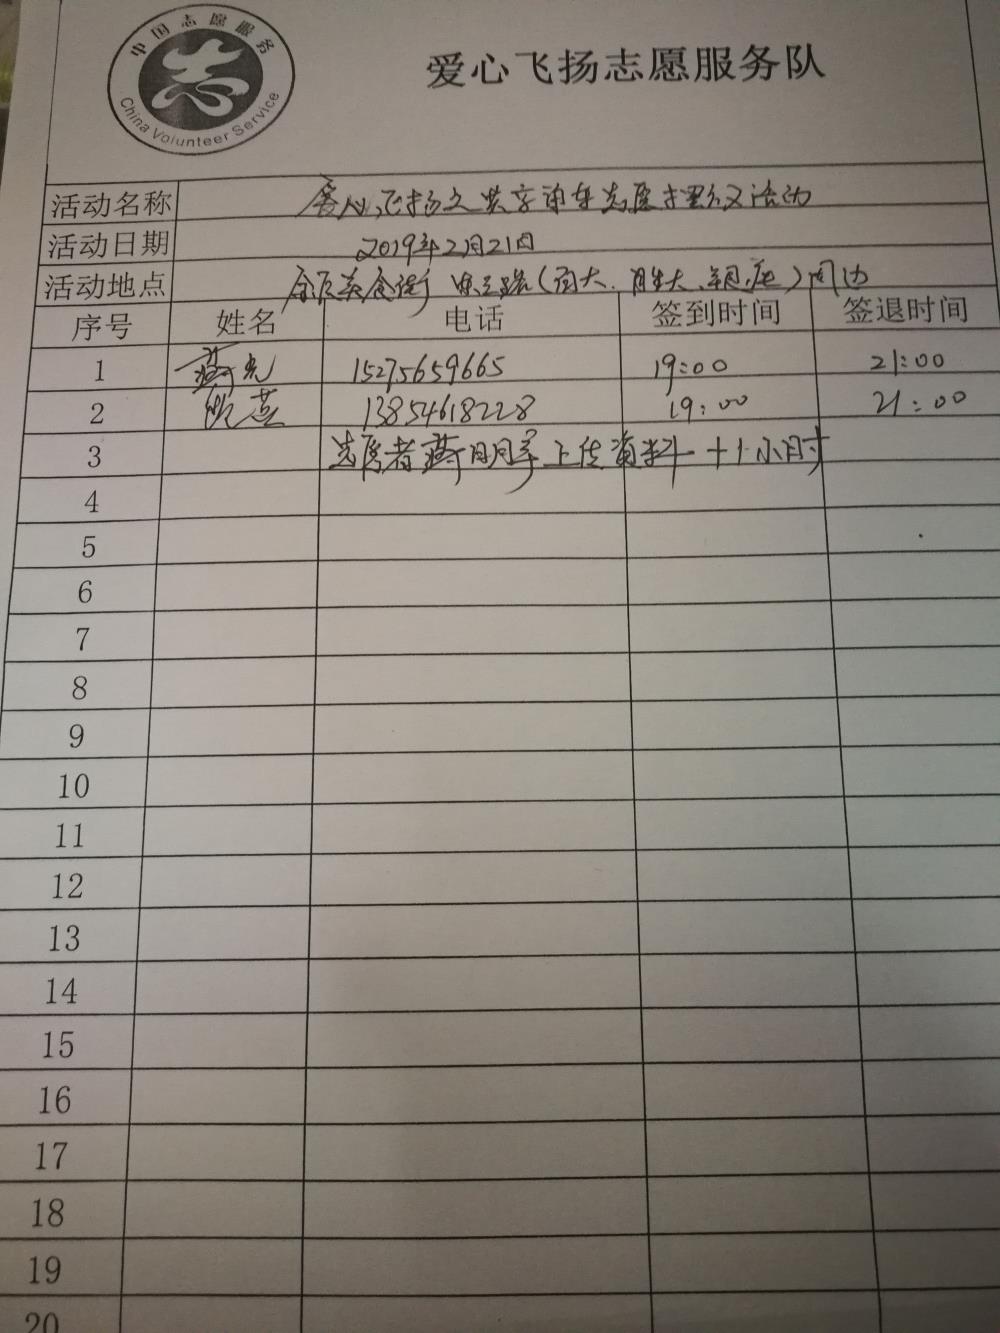 中国志愿服务
China Volunteer Service
爱心飞扬志愿服务队
活动名称 爱心飞扬之共享单车志愿者 活动
活动日期 2019年2月21日
活动地点 美食街 路(百大、胜大、 )周边
序号 姓名 电话 签到时间 签退时间
1 15275659665 19:00 21:00
2 13854618228 19:00 21:00
3 志愿者 上传资料+1小时
4
5
6
7
8
9
10
11
12
13
14
15
16
17
18
19
20